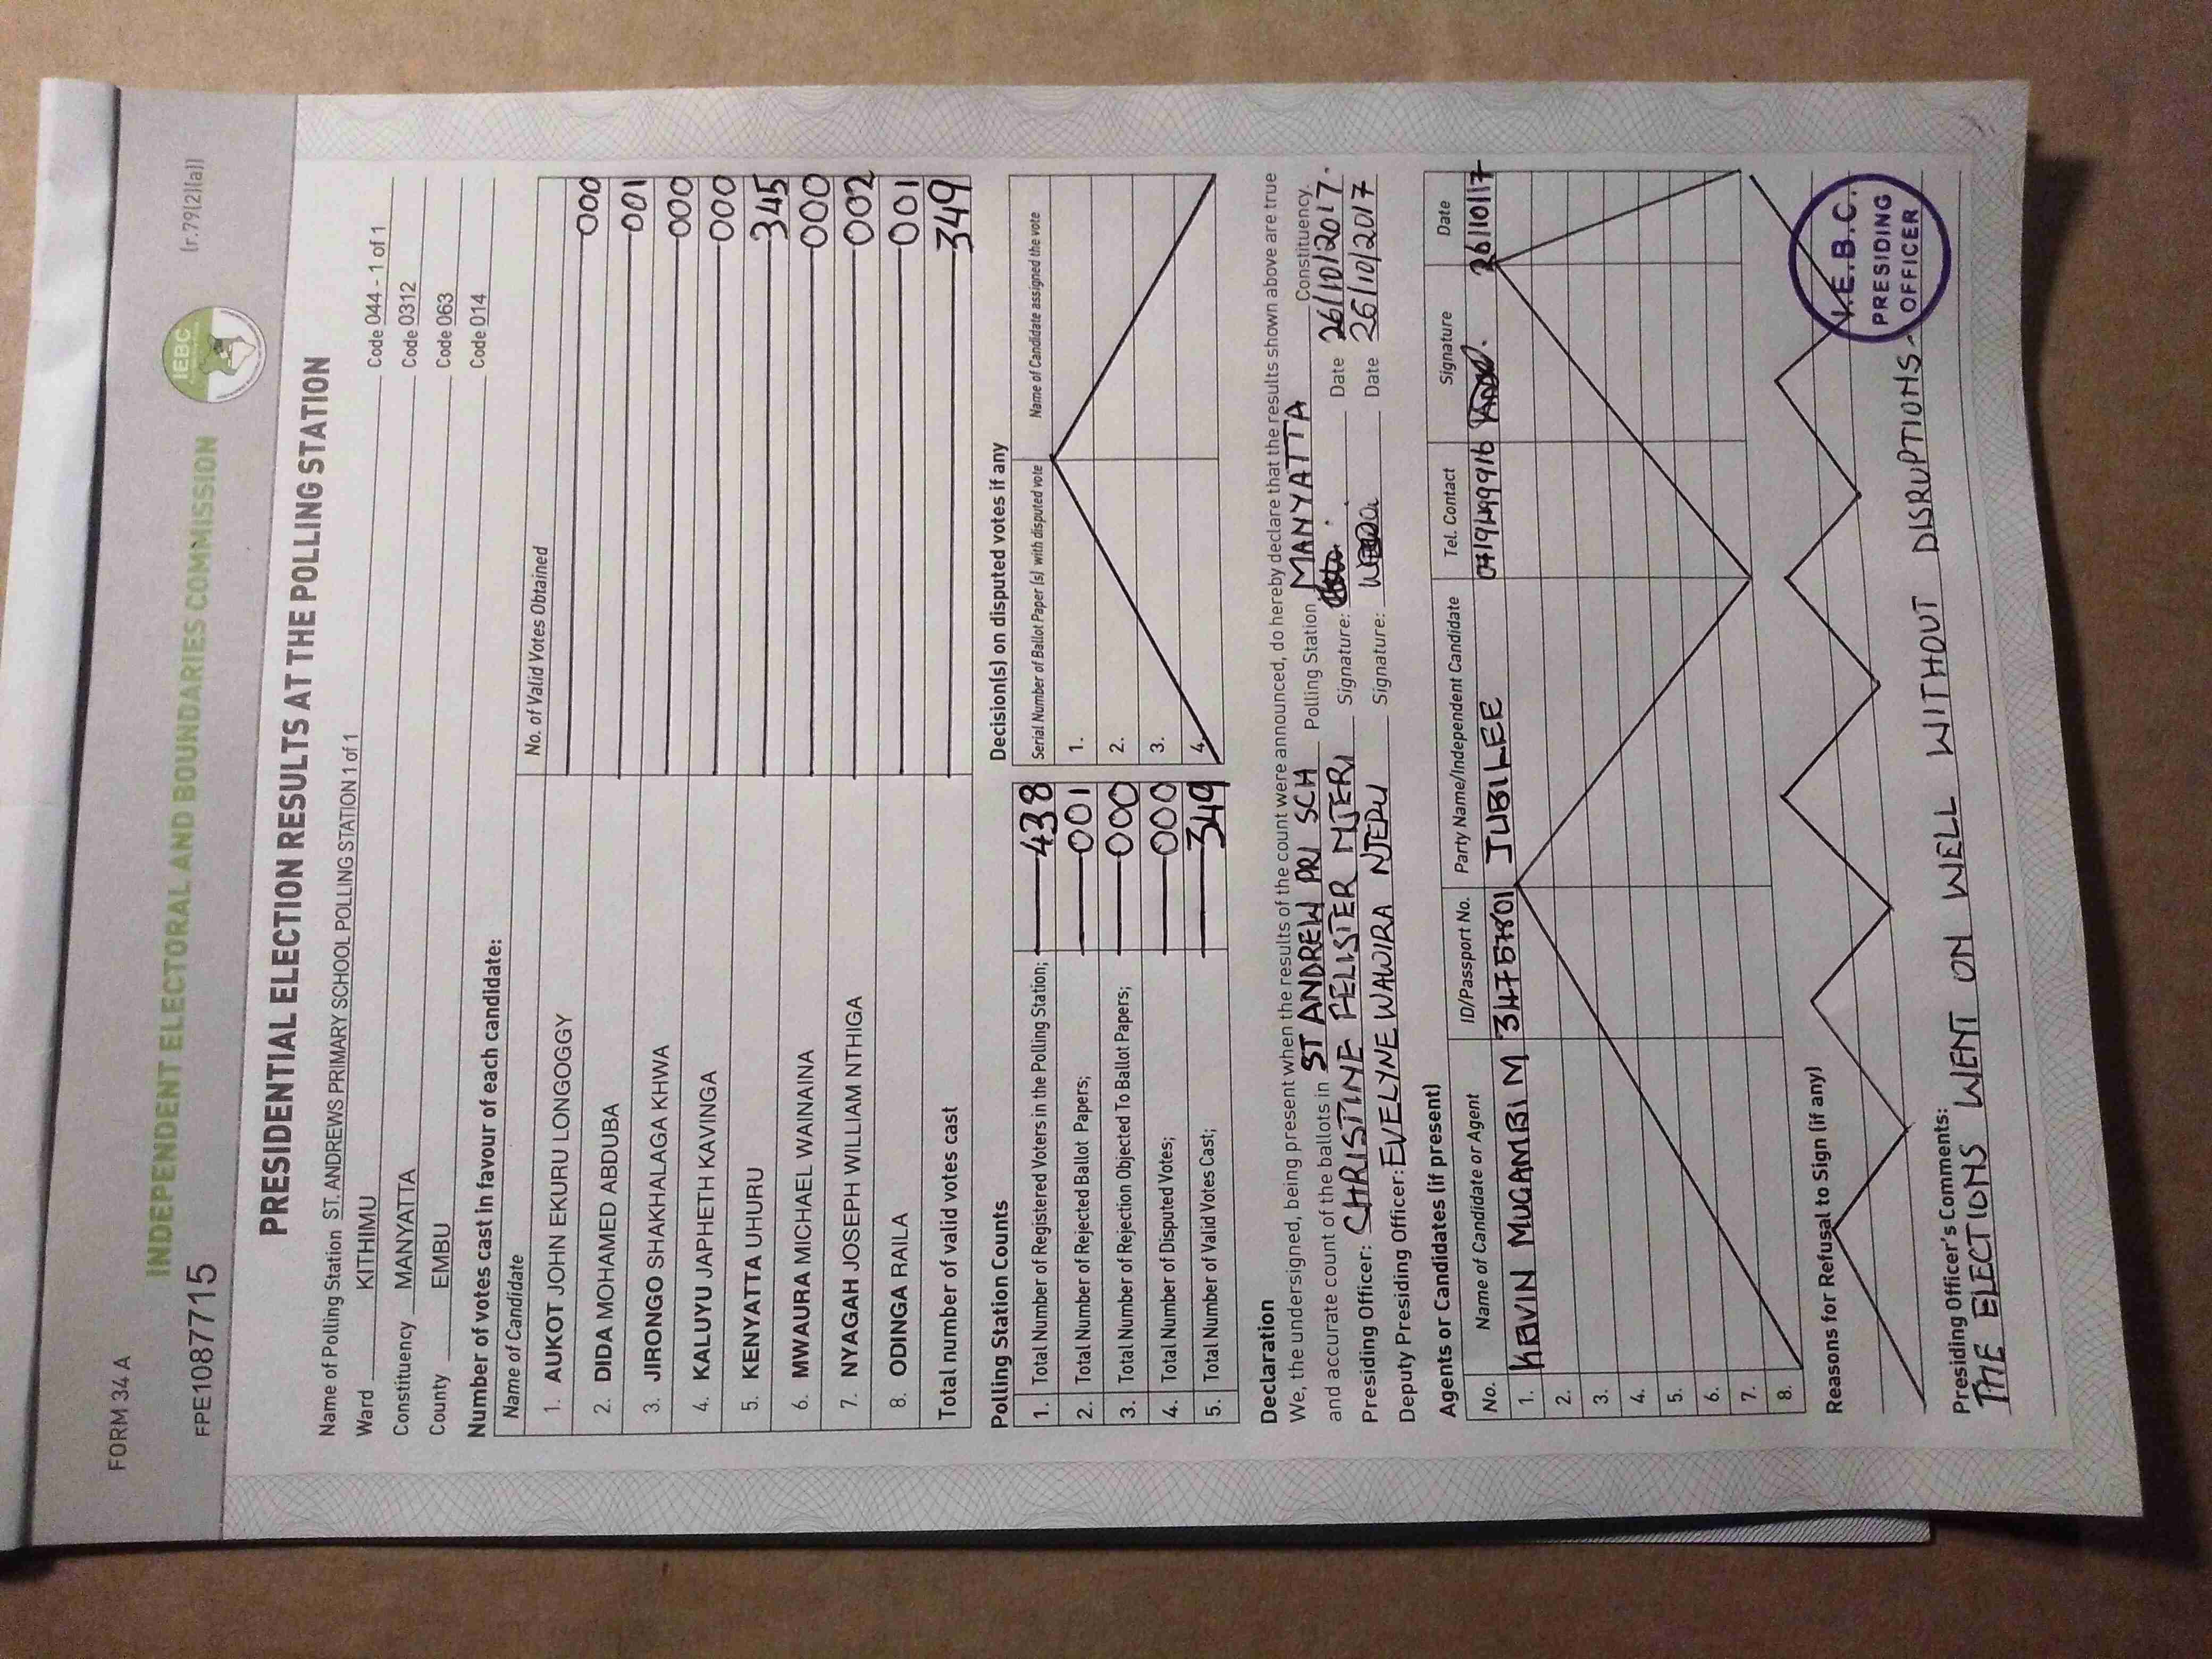 FORM 34 A
INDEPENDENT ELECTORAL AND BOUNDARIES COMMISSION
IEBC
(r.79(2)(a))
FPE1087715
PRESIDENTIAL ELECTION RESULTS AT THE POLLING STATION
Name of Polling Station ST. ANDREWS PRIMARY SCHOOL POLLING STATION 1 of 1 Code 044 - 1 of 1
Ward KITHIMU Code 0312
Constituency MANYATTA Code 063
County EMBU Code 014
Number of votes cast in favour of each candidate:
Name of Candidate No. of Valid Votes Obtained
1. AUKOT JOHN EKURU LONGOGGY 000
2. DIDA MOHAMED ABDUBA 001
3. JIRONGO SHAKHALAGA KHWA 000
4. KALUYU JAPHETH KAVINGA 000
5. KENYATTA UHURU 345
6. MWAURA MICHAEL WAINAINA 000
7. NYAGAH JOSEPH WILLIAM NTHIGA 002
8. ODINGA RAILA 001
Total number of valid votes cast 349
Polling Station Counts
1. Total Number of Registered Voters in the Polling Station; 438
2. Total Number of Rejected Ballot Papers; 001
3. Total Number of Rejection Objected To Ballot Papers; 000
4. Total Number of Disputed Votes; 000
5. Total Number of Valid Votes Cast; 349
Decision(s) on disputed votes if any
Serial Number of Ballot Paper (s) with disputed vote Name of Candidate assigned the vote
1.
2.
3.
4.
Declaration
We, the undersigned, being present when the results of the count were announced, do hereby declare that the results shown above are true
and accurate count of the ballots in ST ANDREW PRI SCH Polling Station MANYATTA Constituency
Presiding Officer: CHRISTINE FELISTER MJERI Signature: Date 26/10/2017.
Deputy Presiding Officer: EVELYNE WAWIRA NJERU Signature: Date 26/10/2017
Agents or Candidates (if present)
No. Name of Candidate or Agent ID/Passport No. Party Name/Independent Candidate Tel. Contact Signature Date
1. KEVIN MUGAMBI M 31757801 JUBILEE 0719499916 26/10/17
2.
3.
4.
5.
6.
7.
8.
Reasons for Refusal to Sign (if any)
I.E.B.C.
PRESIDING
OFFICER
Presiding Officer's Comments:
THE ELECTIONS WENT ON WELL WITHOUT DISRUPTIONS.